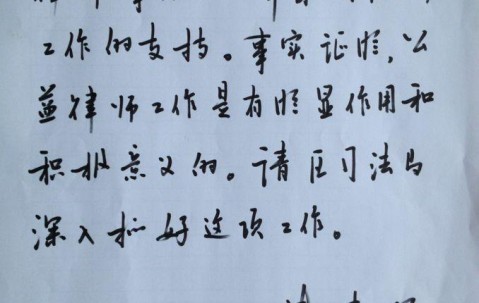 工作的支持。事实证明,公
益律师工作是有明显作用和
积极意义的。请区司法局
深入抓好这项工作。